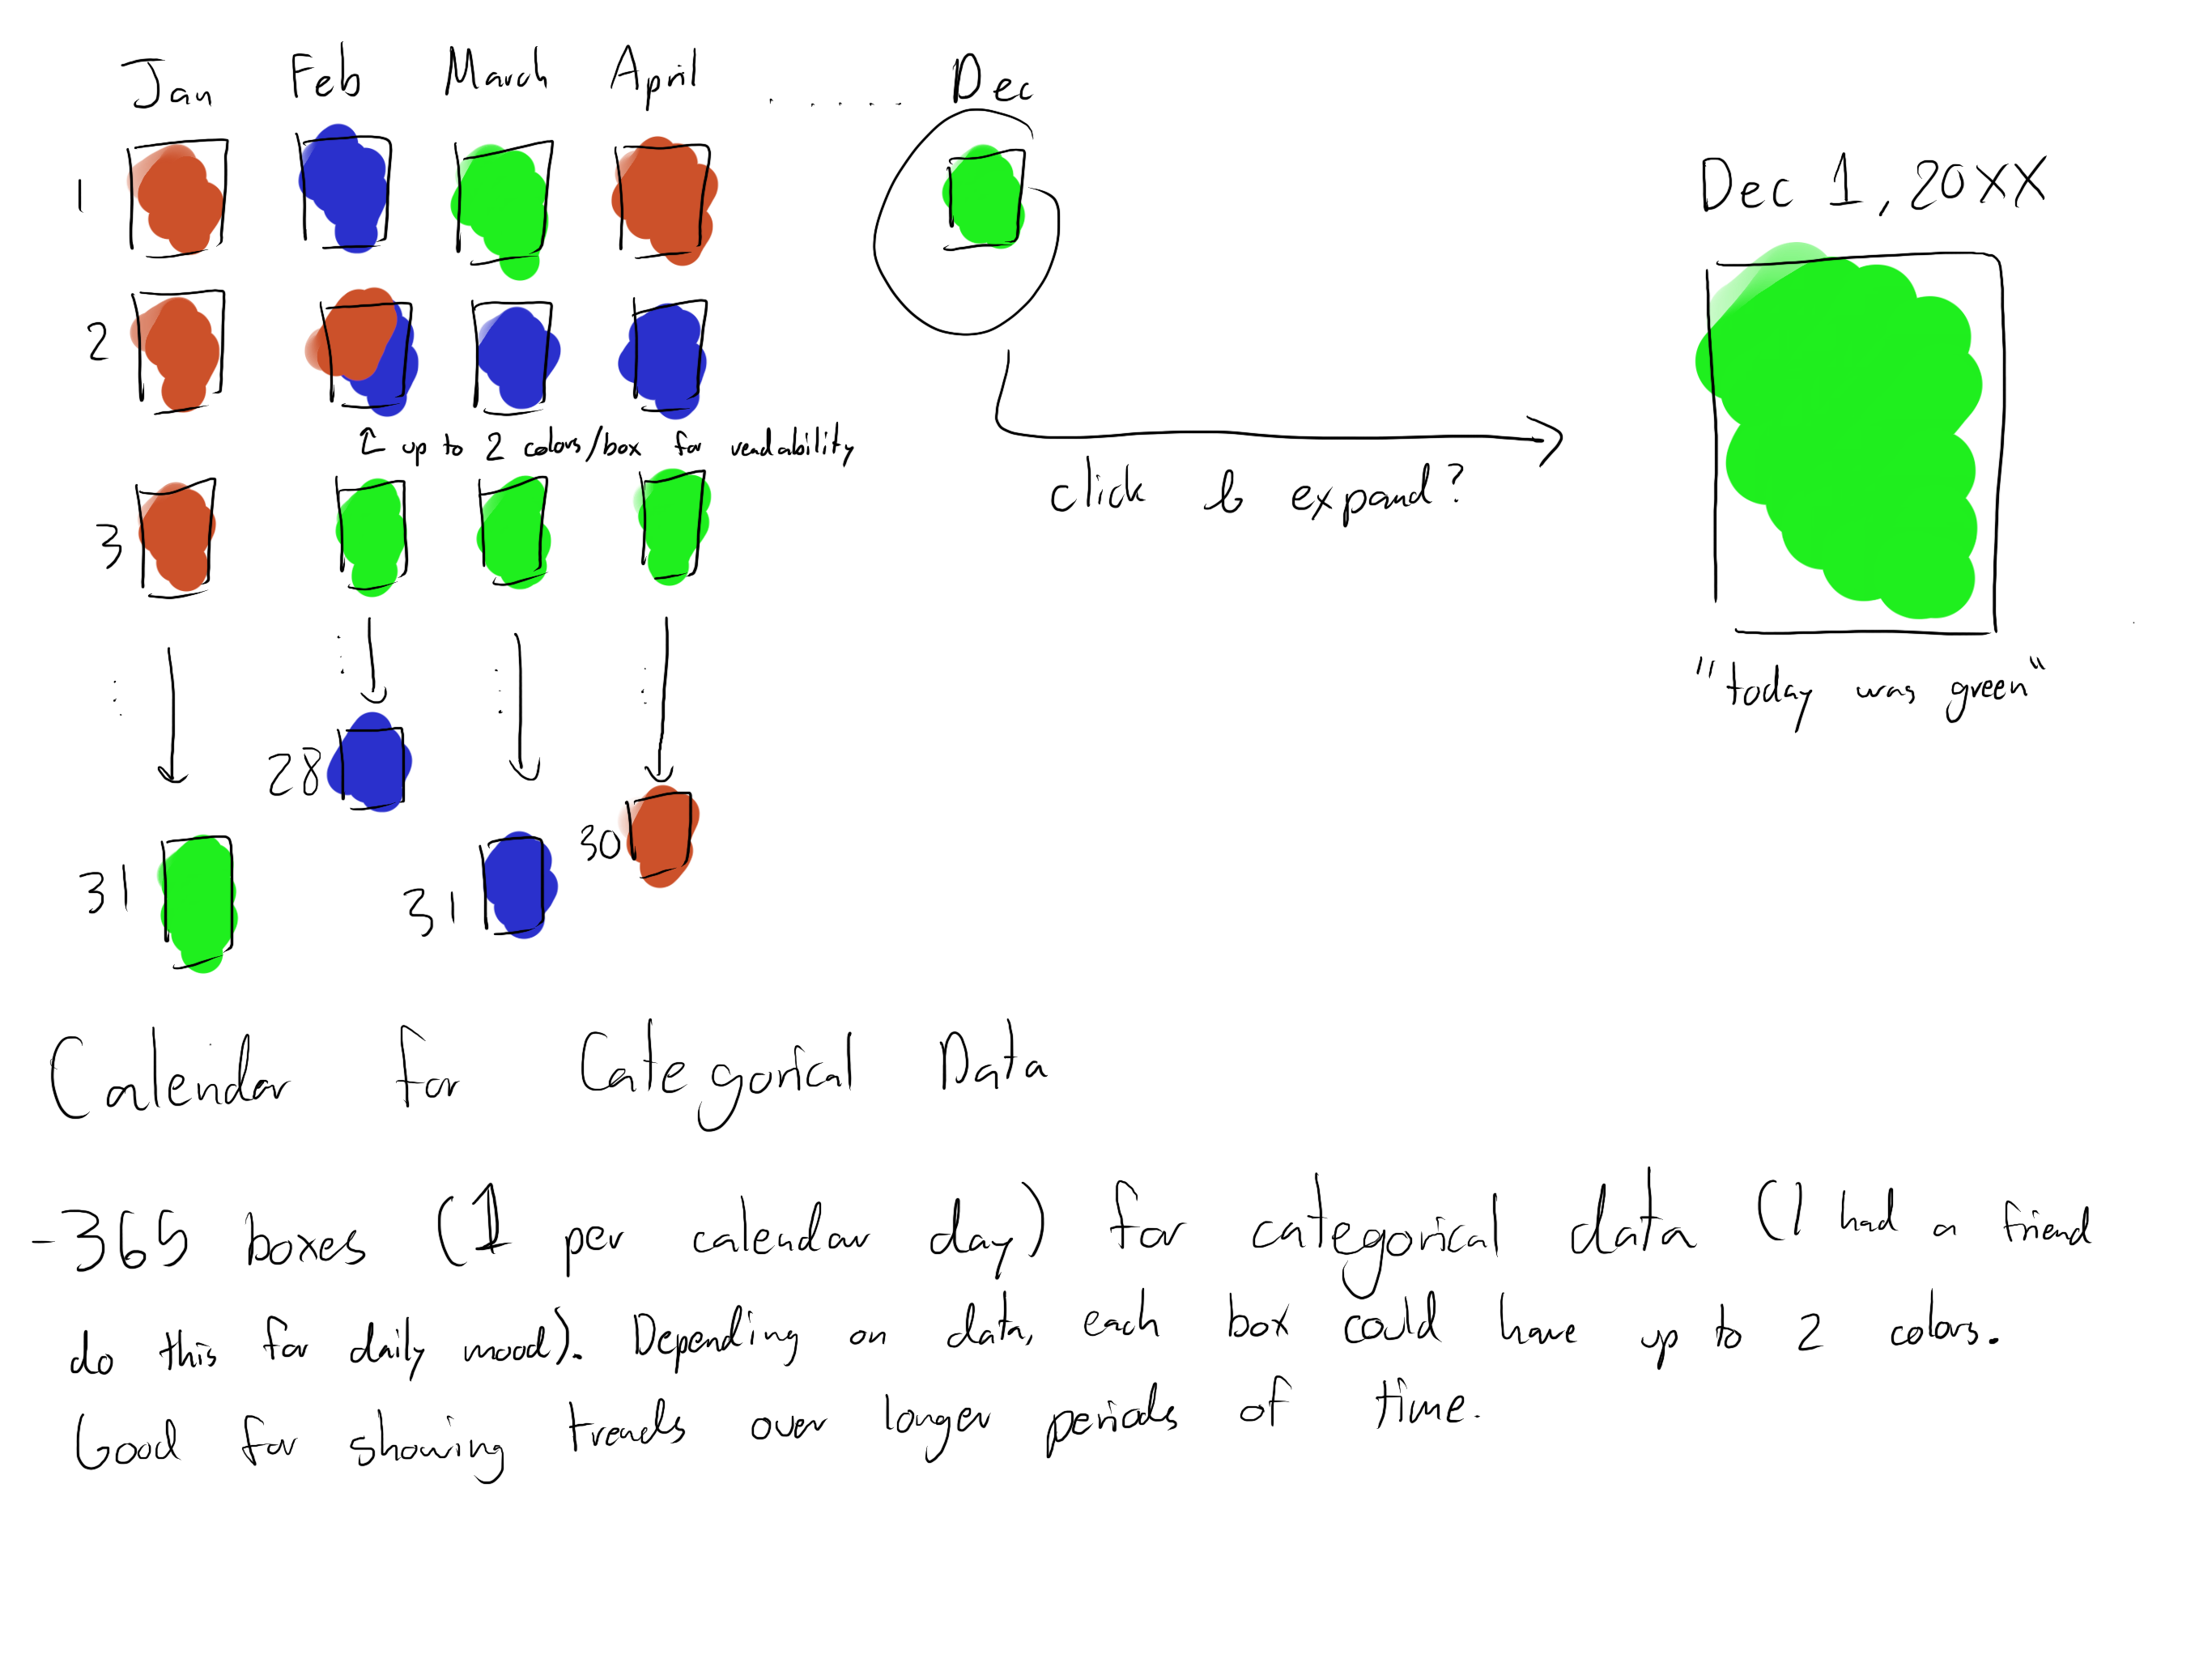 Jan Feb March April ...... Dec
1
Dec 1, 20XX
2
↑ up to 2 colors/box for readability
click to expand?
3
"today was green"
28
30
31
31
Calendar for Categorical Data
-365 boxes (1 per calendar day) for categorical data (I had a friend
do this for daily mood). Depending on data, each box could have up to 2 colors.
Good for showing trends over longer periods of time.